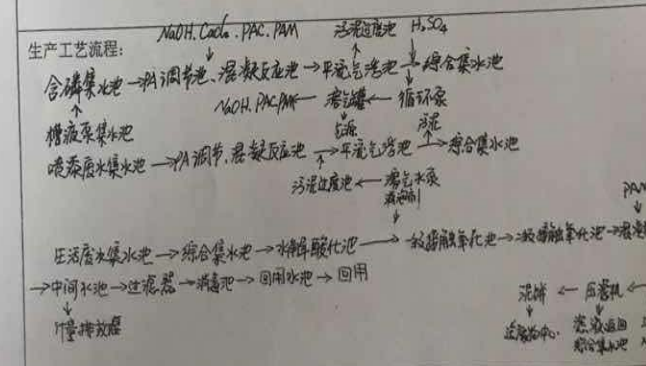 NaOH.CaCl₂.PAC.PAM 污泥过度池 H₂SO₄
生产工艺流程:
含磷集水池→PA调节池、混凝反应池→平流气浮池→综合集水池
NaOH.PAC.PAM 溶气罐←循环泵
槽液泵集水池 污泥
喷漆废水集水池→PA调节、混凝反应池→平流气浮池→综合集水池
污泥过度池←溶气水泵
PAM
生活废水集水池→综合集水池→水解酸化池→一级接触氧化池→二级接触氧化池→混凝
→中间水池→过滤器→消毒池→回用水池→回用
泥饼←压滤机←
计量排放
滤液返回
综合集水池